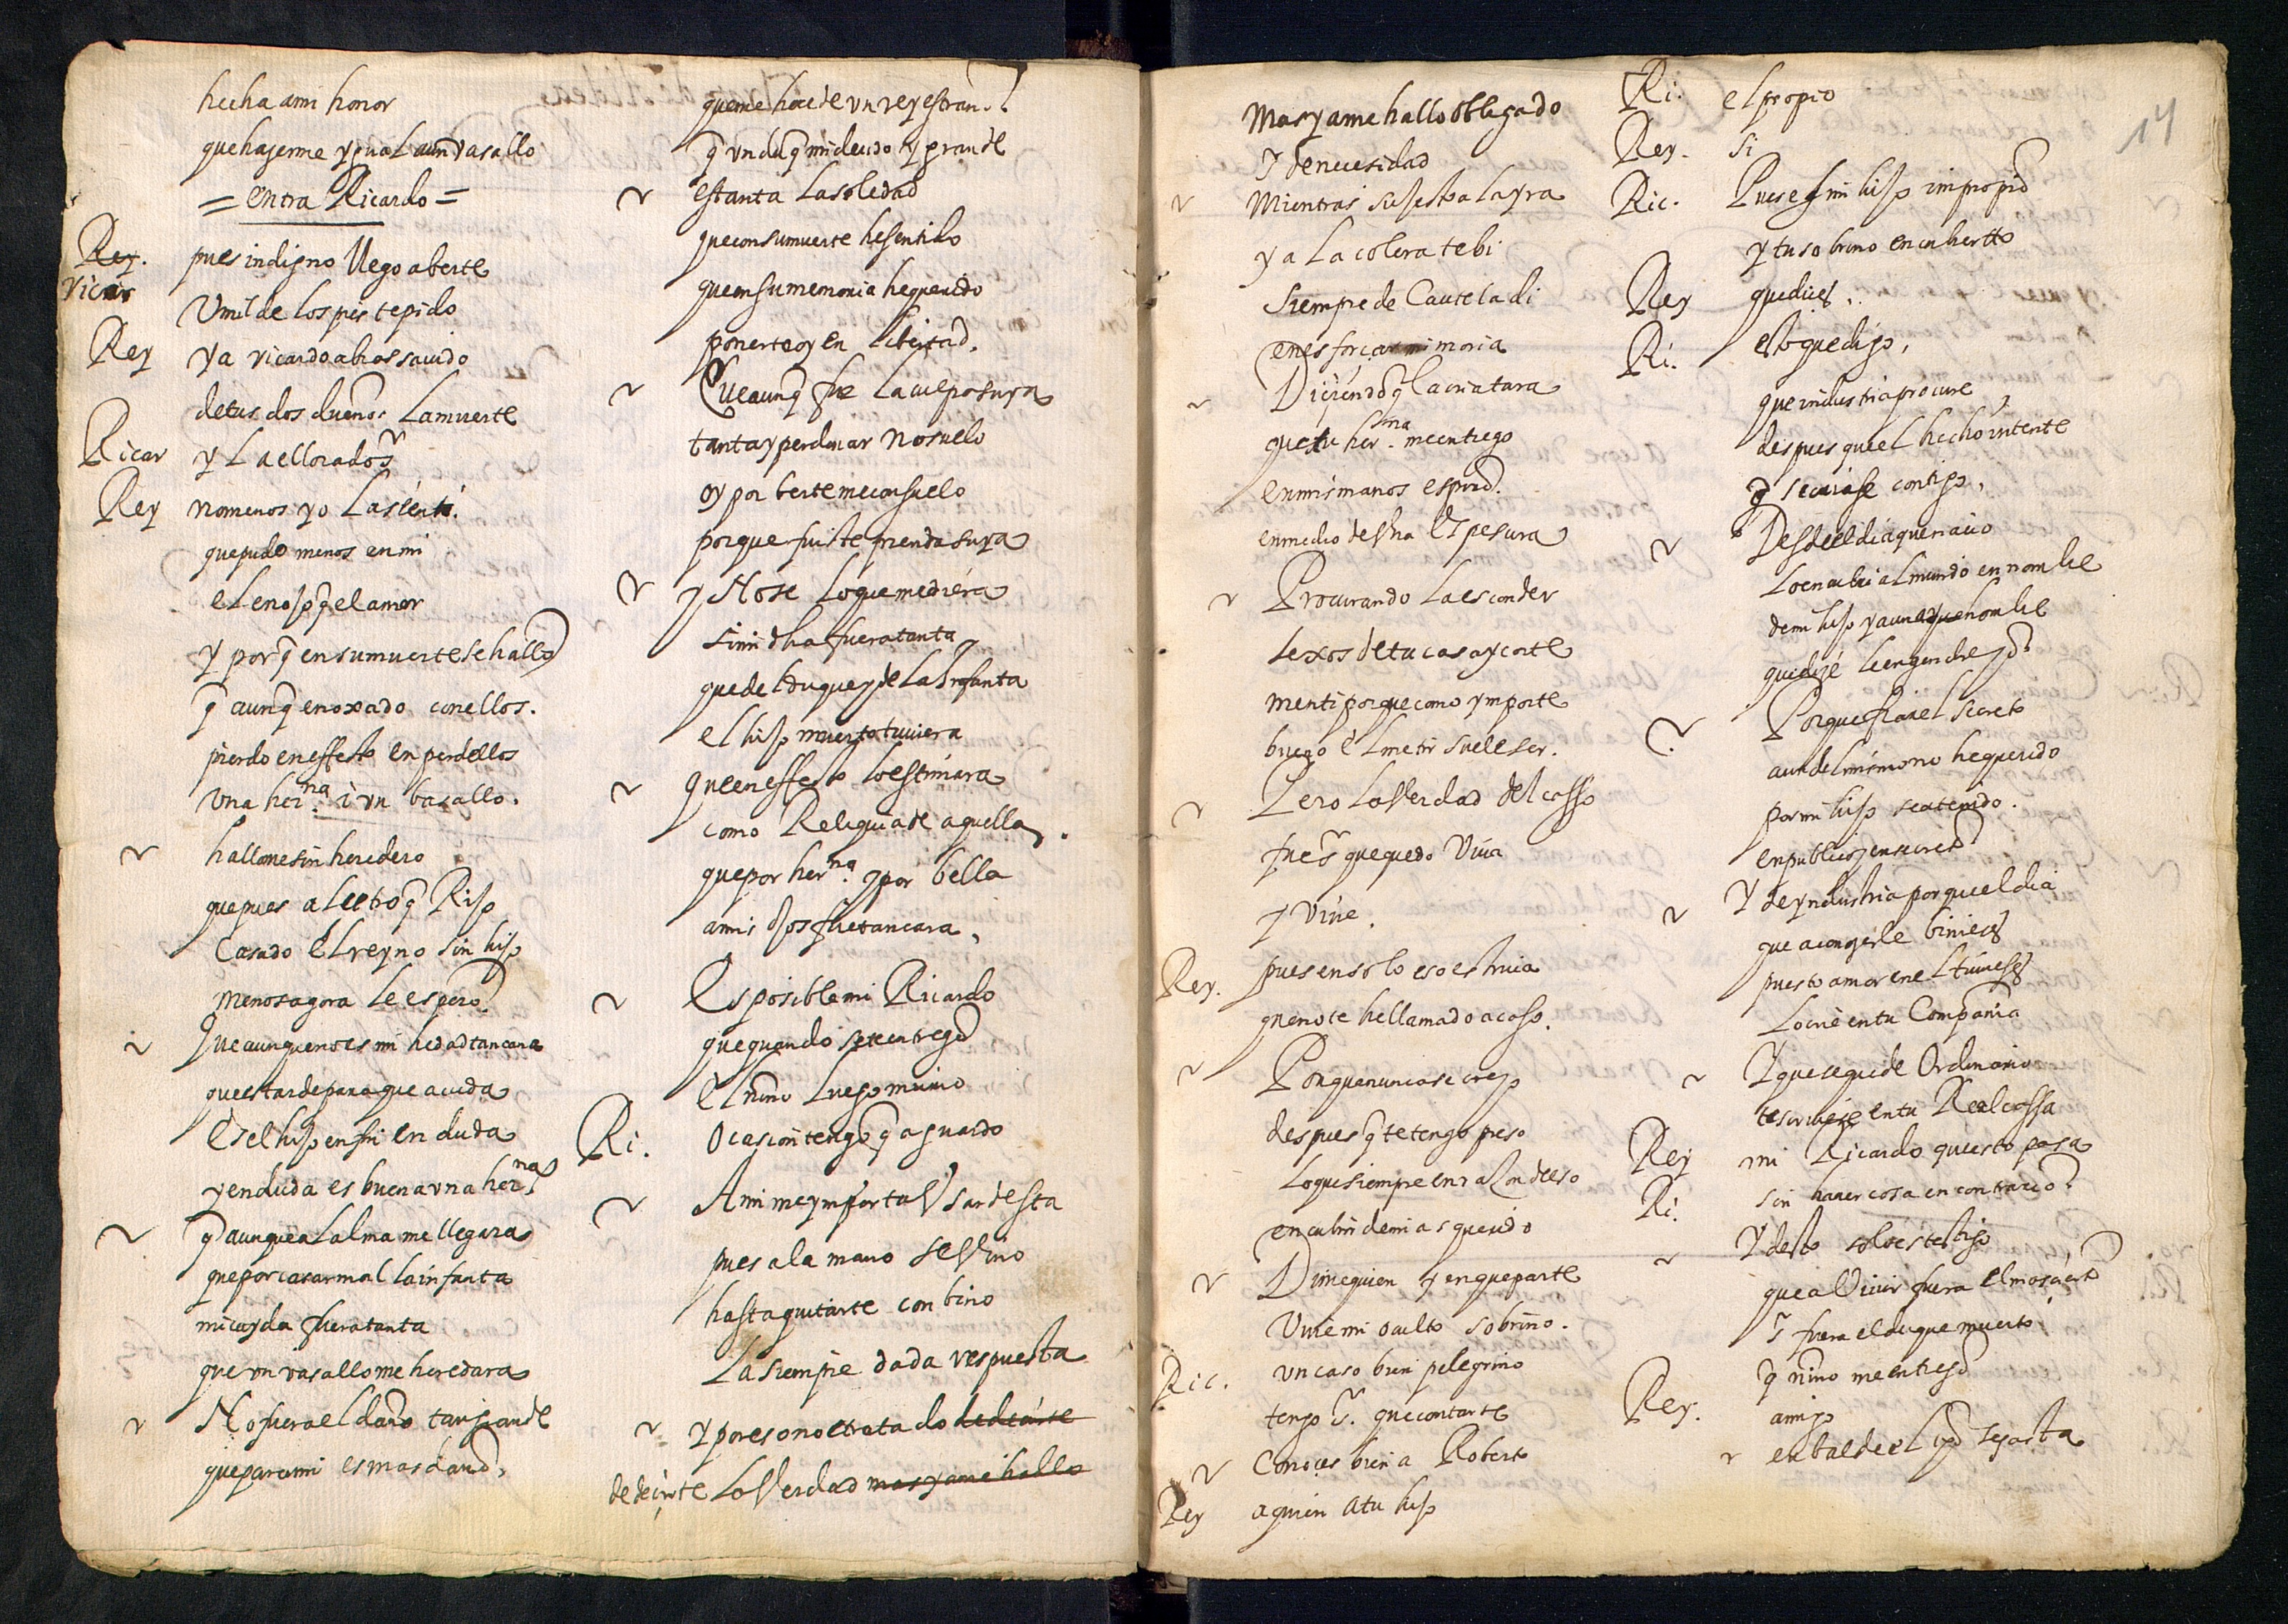 hecha ami honor
que haserme ygual a un vasallo
= entra Ricardo =
Rey.
ricar pues indigno llego aberte
Umilde los pies te pido
Rey ya ricardo abras sauido
de tus dos dueños la muerte
Ricar y la e llorado Sr
Rey no menos yo la senti.
que pudo menos en mi
el enojo q el amor
y porq en su muerte se hallo
q aunq enoxado con ellos.
pierdo en effeto en perdellos
una her.na i un basallo.
hallome sin heredero
que pues
Casado el reyno sin hijo
menos agora le espero
Que aunque no es mi hedad tan cana
que es tarde para que acuda
es el hijo en fin en duda
y en duda es buena una her.na
q aunque al alma me llegara
que por casar mal la infanta
mi cuyda fuera tanta
que un vasallo me heredara
No fuera el daño tan grande
que para mi es mas daño,
que me herede un rey estraño
q un duq mi deudo y grande
es tanta la soledad
que con su muerte he sentido
que en su memoria he querido
ponerte oy en libertad.
Que aunq fue la culpa suya
tanta y perdonar no suelo
oy por berte me consuelo
porque fuiste prenda suya
y No se lo que me diera
si mi dha fuera tanta
que del duque y de la Infanta
el hijo muerto tuuiera
que en effeto lo estimara
como Reliquia de aquella
que por her.na y por bella
a mis ojos fue tan cara,
Es posible mi Ricardo
que quando se te entrego
el niño luego murio
Ri. Ocasion tengo q aguardo
A mi me ymporta Usar desta
pues a la mano se vino
hasta quitarte con bino
la siempre dada respuesta
y por eso no e tratado de decirte
de decirte la Verdad mas ya me hallo
Mas ya me hallo obligado
Sr de necesidad
Mientras sujeto a la yra
y a la colera te bi
siempre de Cautela di
en esforçar mi
Diçiendo q la criatura
que tu her.na me entrego
en mis manos espiro.
en medio de una Espesura
Procurando la esconder
lexos de tu casa y corte
menti porque como ymporte
bueno el metir suele ser.
Pero la Verdad del casso
fue Sr que quedo Viua
y Viue.
Rey. pues en solo eso estriua
que no te he llamado acaso.
Porque nunca se creyo
despues q te tengo preso
lo que siempre en raçon deso
encubrir de mi as querido
Dime quien y en que parte
Viue mi oculto sobrino.
Ric. un caso bien pelegrino
tengo Sr. que contarte
Conoçes bien a Roberto
Rey a quien a tu hijo
14
Ri. el propio
Rey. si
Ric. Pues es mi hijo impropio
y tu sobrino encubertto
Rey que dices.
Ri. esto que digo,
que industria procure
despues que el hecho intente
q se criase contigo,
Desde el dia que nacio
lo encubri al mundo en nombre
de mi hijo y aun a quien hombre
que dize le engendre yo
Porque fiar el secreto
aun del mismo no he querido
por mi hijo se a tenido.
en publico y en secreto
Y de yndustria por que el dia
que a conoçerle binieses
puesto amor en el tuuieses
lo crie en tu Compañia
Y que seguide Ordinario
te siruiese en tu Real cassa
Rey mi Ricardo que esto pasa
Ri. sin hauer cosa en contrario
Y desto solo es testigo
que a Viuir fuera el mas çierto
Sr fuera el duque muerto
q niño me entrego
Rey. amigo
en balde el se gasta